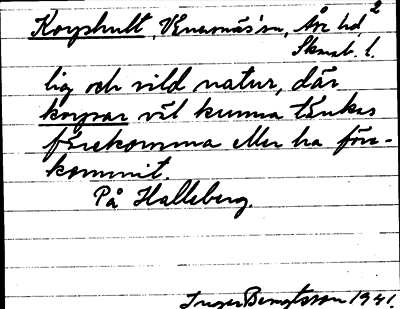 Korpshult, Vänersnäs sn, Åse hd, 2
Skarab. l.
lig och vild natur, där
korpar väl kunna tänkas
förekomma eller ha före-
kommit.
På Halleberg.
Inger Bengtsson 1941.